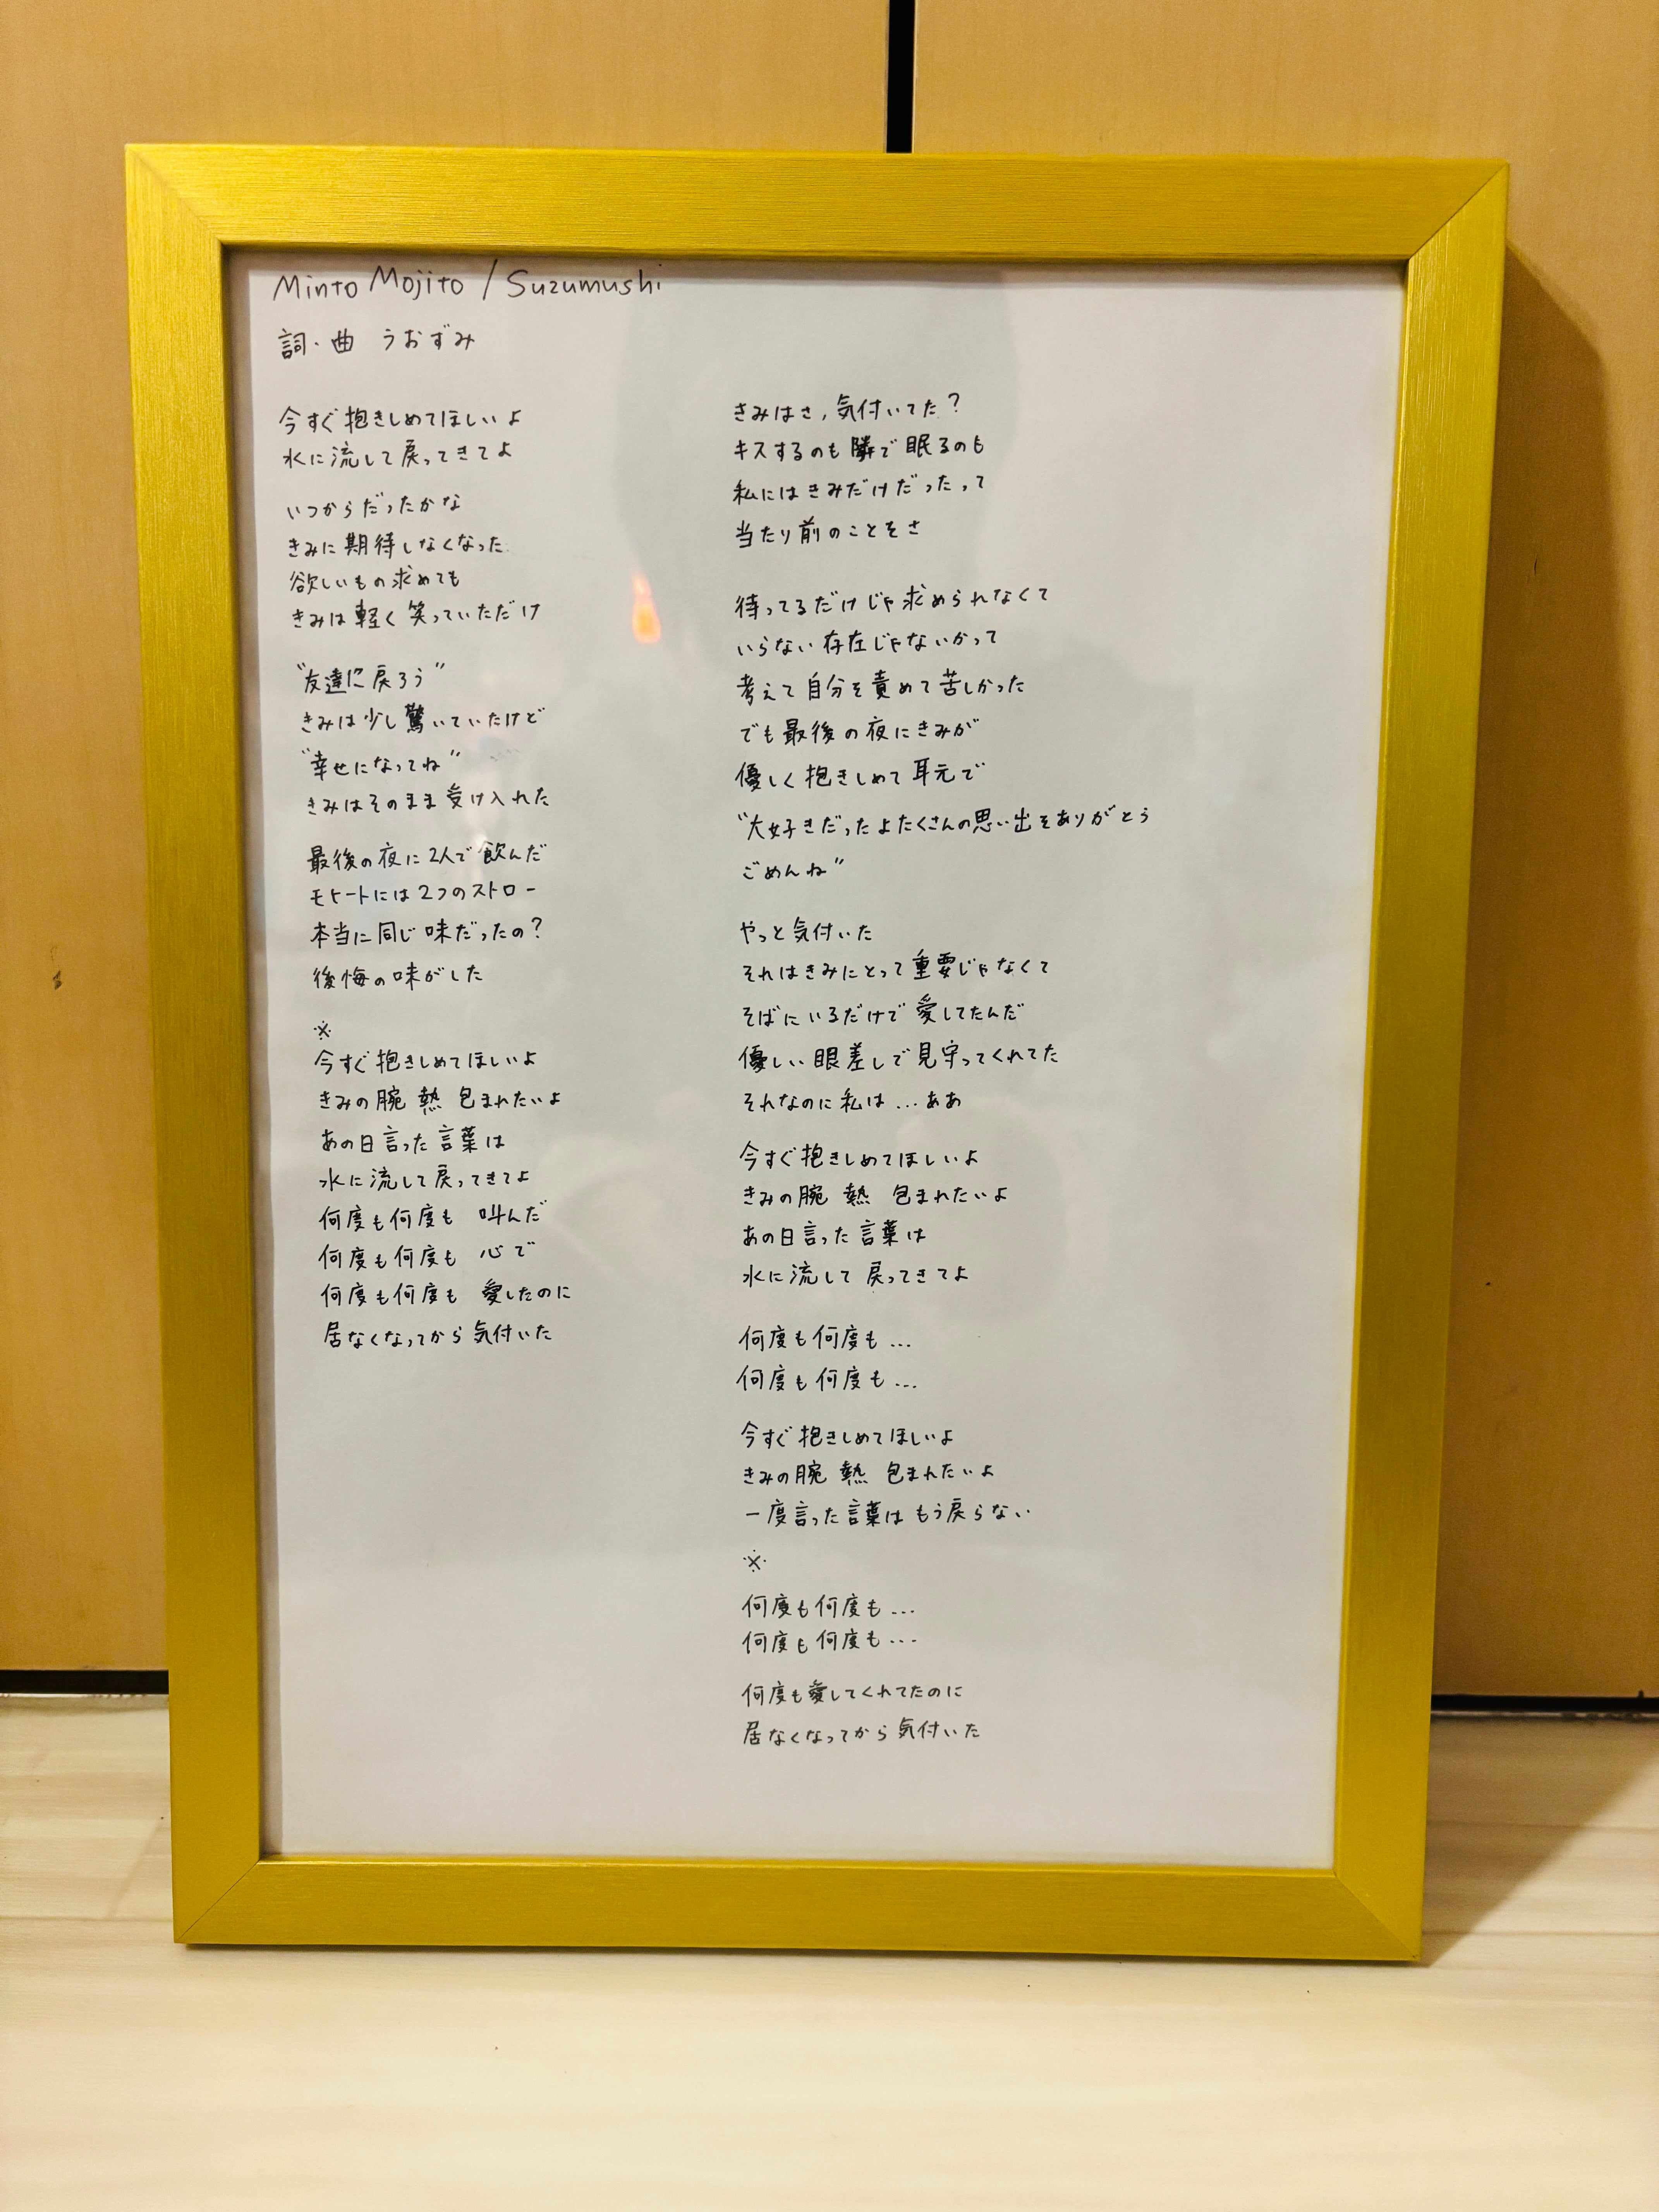 Minto Mojito / Suzumushi
詞・曲 うおずみ
今すぐ抱きしめてほしいよ
水に流して戻ってきてよ
いつからだったかな
きみに期待しなくなった
欲しいもの求めても
きみは軽く笑っていただけ
"友達に戻ろう"
きみは少し驚いていたけど
"幸せになってね"
きみはそのまま受け入れた
最後の夜に2人で飲んだ
モヒートには2つのストロー
本当に同じ味だったの?
後悔の味がした
※
今すぐ抱きしめてほしいよ
きみの腕 熱 包まれたいよ
あの日言った言葉は
水に流して戻ってきてよ
何度も何度も 叫んだ
何度も何度も 心で
何度も何度も 愛したのに
居なくなってから気付いた
きみはさ,気付いてた?
キスするのも隣で眠るのも
私にはきみだけだったって
当たり前のことをさ
待ってるだけじゃ求められなくて
いらない存在じゃないかって
考えて自分を責めて苦しかった
でも最後の夜にきみが
優しく抱きしめて耳元で
"大好きだったよたくさんの思い出をありがとう
ごめんね"
やっと気付いた
それはきみにとって重要じゃなくて
そばにいるだけで愛してたんだ
優しい眼差しで見守ってくれてた
それなのに私は...ああ
今すぐ抱きしめてほしいよ
きみの腕 熱 包まれたいよ
あの日言った言葉は
水に流して戻ってきてよ
何度も何度も...
何度も何度も...
今すぐ抱きしめてほしいよ
きみの腕 熱 包まれたいよ
一度言った言葉はもう戻らない
※
何度も何度も...
何度も何度も...
何度も愛してくれてたのに
居なくなってから気付いた